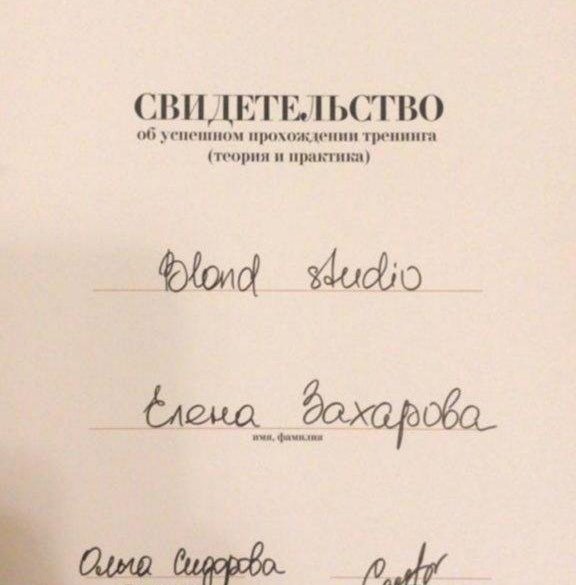 СВИДЕТЕЛЬСТВО
об успешном прохождении тренинга
(теория и практика)
Blond studio
Елена Захарова
имя, фамилия
Ольга Сидорова